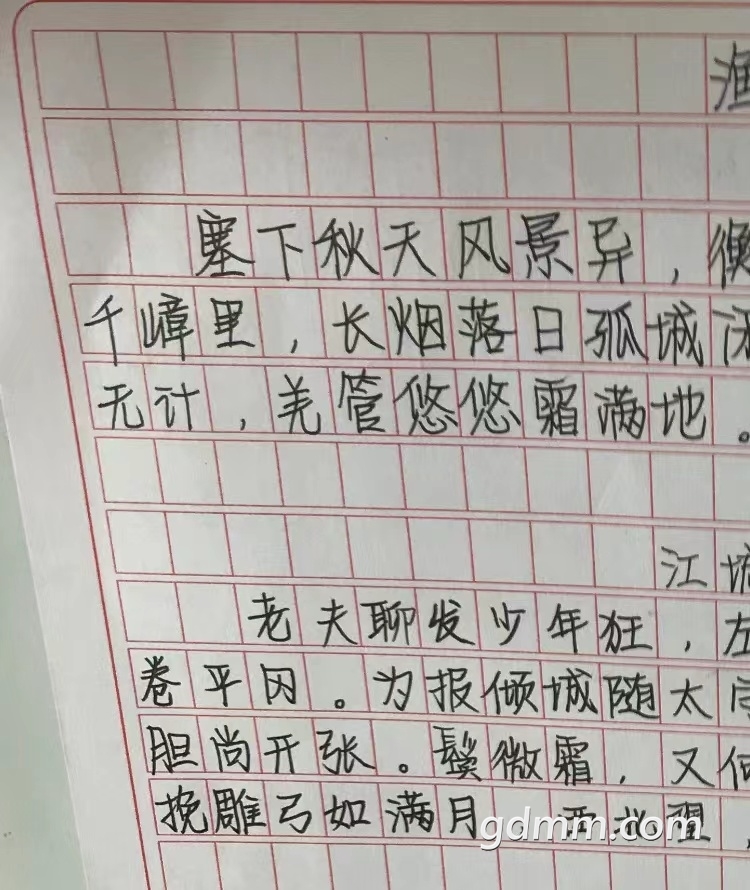 渔
塞下秋天风景异，衡
千嶂里，长烟落日孤城闭
无计，羌管悠悠霜满地。
江城
老夫聊发少年狂，左
卷平冈。为报倾城随太守
胆尚开张。鬓微霜，又何
挽雕弓如满月，西北望，
gdmm.com